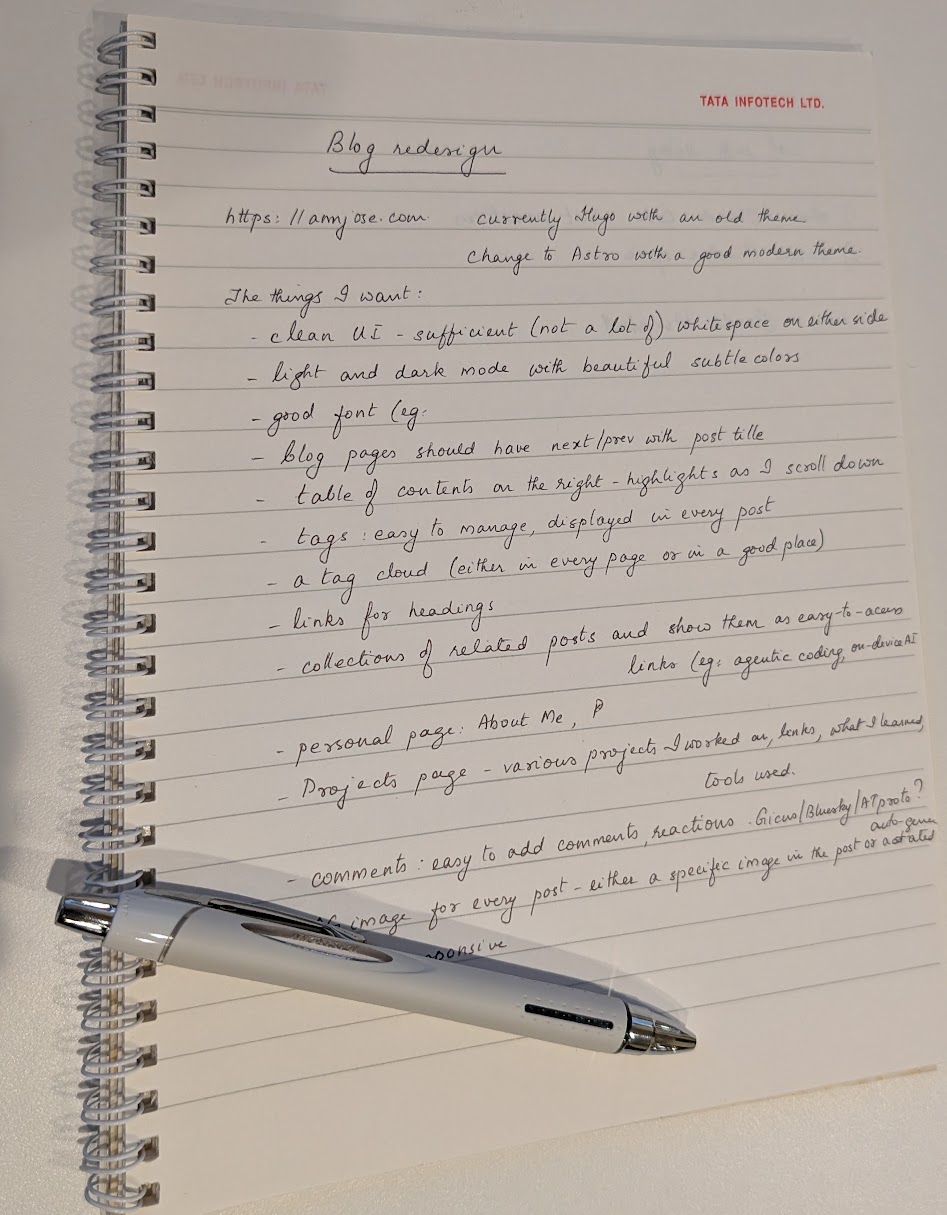 TATA INFOTECH LTD.
Blog redesign
https://amyjose.com currently Hugo with an old theme
change to Astro with a good modern theme.
The things I want:
- clean UI - sufficient (not a lot of) whitespace on either side
- light and dark mode with beautiful subtle colors
- good font (eg:
- blog pages should have next/prev with post title
- table of contents on the right - highlights as I scroll down
- tags : easy to manage, displayed in every post
- a tag cloud (either in every page or in a good place)
- links for headings
- collections of related posts and show them as easy-to-acess
links (eg: agentic coding, on-device AI
- personal page: About Me, P
- Projects page - various projects I worked on, links, what I learned,
tools used.
- comments : easy to add comments, reactions - Gicus/Bluesky/ATproto?
image for every post - either a specific image in the post or a auto-generated
ponsive